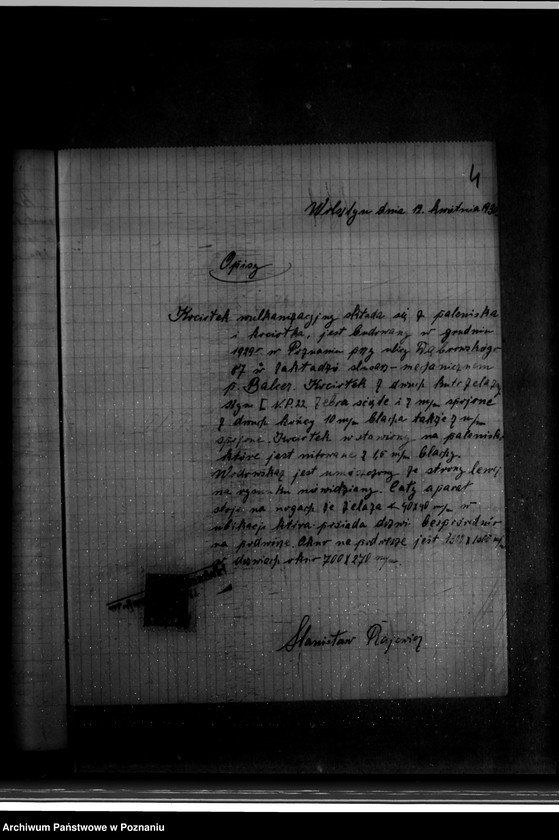 4
dnia 19. kwietnia
Opisz
Kociołek wulkanizacyjny składa się z paleniska
i kociołka, jest budowany w grudniu
1929 r w Poznaniu przy ulicy Dąbrowskiego
87 w zakładzie mechanicznem
p. Balcer. Kociołek z dwuch
N.P. 22 i 7 m/m spojone
z dwuch końcy 10 m/m blacha także 7 m/m
spojone. Kociołek wstawiony na palenisko
które jest nitowane z m/m blachy.
Wodowskaz jest umieszczony ze strony lewej
na rysunku niewidziany. Cały aparat
stoji na nogach ze żelaza m/m w
ubikacji która posiada dzwi bezpośrednio
na podwóże. Okno na podwóże jest
dzwiach okno 700 x 270 m/m.
Stanisław
Archiwum Państwowe w Poznaniu